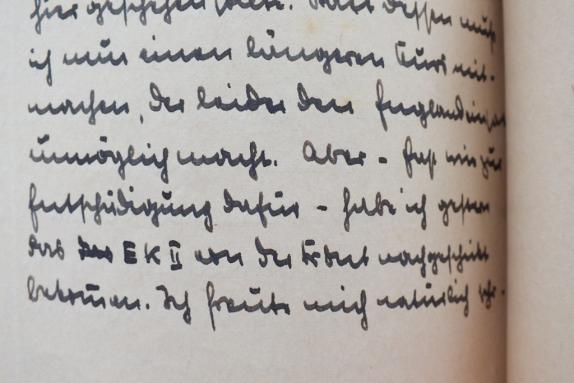 hier geschehen sollte. Statt dessen muß
ich nun einen längeren Kurs mit-
machen, der leider den
unmöglich macht. Aber - fast wie zur
Entschädigung dafür - habe ich gestern
das EK II von der nachgeschickt
bekommen. Ich freute mich natürlich sehr.